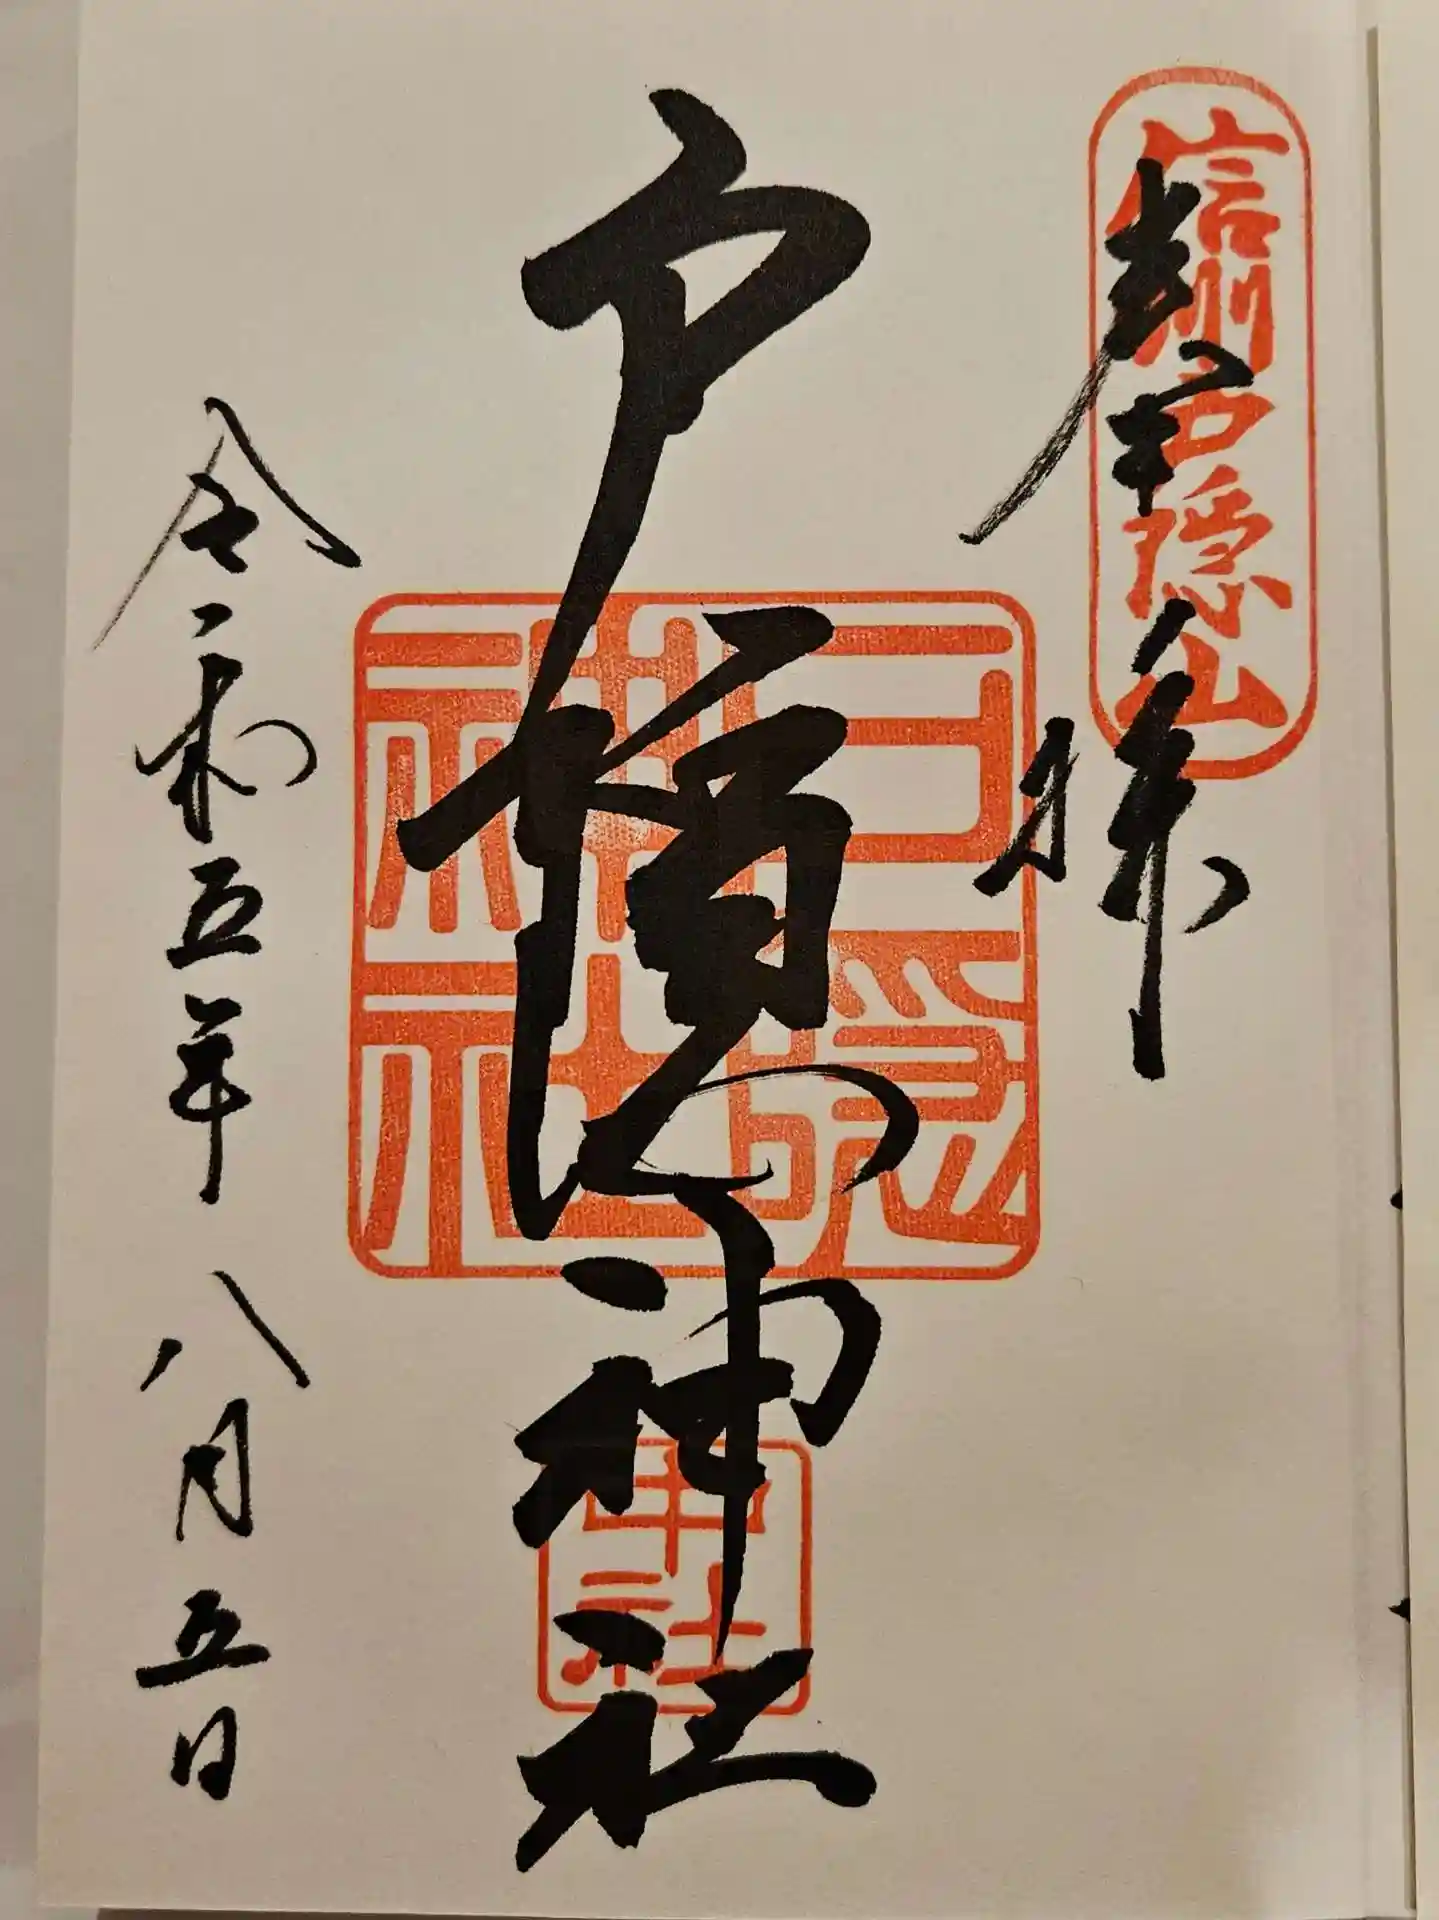 信州戸隠山
奉拝
戸隠神社
戸隠神社
中社
令和五年八月五日